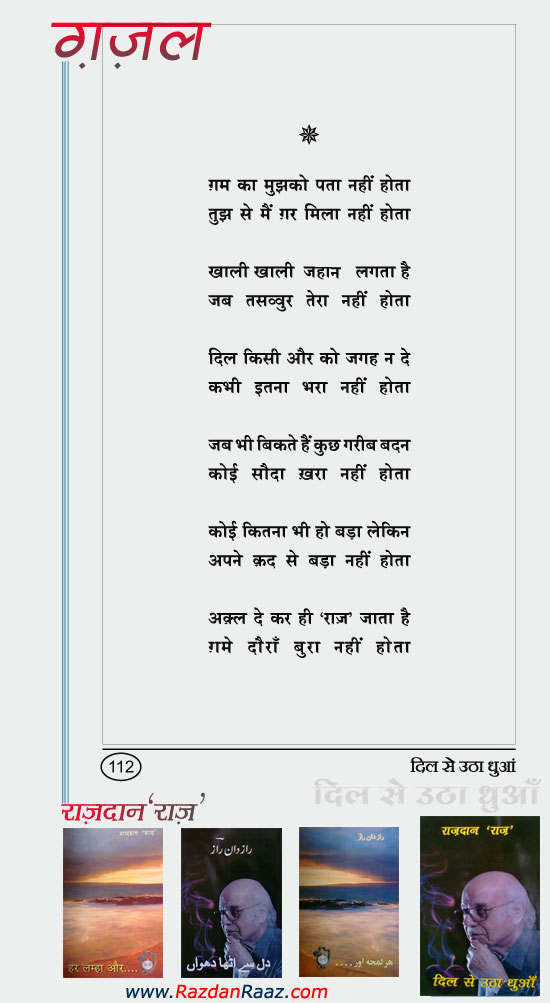 ग़ज़ल
ग़म का मुझको पता नहीं होता
तुझ से मैं ग़र मिला नहीं होता
खाली खाली जहान लगता है
जब तसव्वुर तेरा नहीं होता
दिल किसी और को जगह न दे
कभी इतना भरा नहीं होता
जब भी बिकते हैं कुछ गरीब बदन
कोई सौदा ख़रा नहीं होता
कोई कितना भी हो बड़ा लेकिन
अपने क़द से बड़ा नहीं होता
अक़्ल दे कर ही ‘राज़’ जाता है
ग़मे दौराँ बुरा नहीं होता
112
दिल से उठा धुआं
दिल से उठा धुआँ
राज़दान ‘राज़’
राज़दान ‘राज़’
हर लम्हा और....
راز دان راز
دل سے اٹھا دھواں
راز دان راز
ہر لمحہ اور....
राज़दान ‘राज़’
दिल से उठा धुआँ
www.RazdanRaaz.com